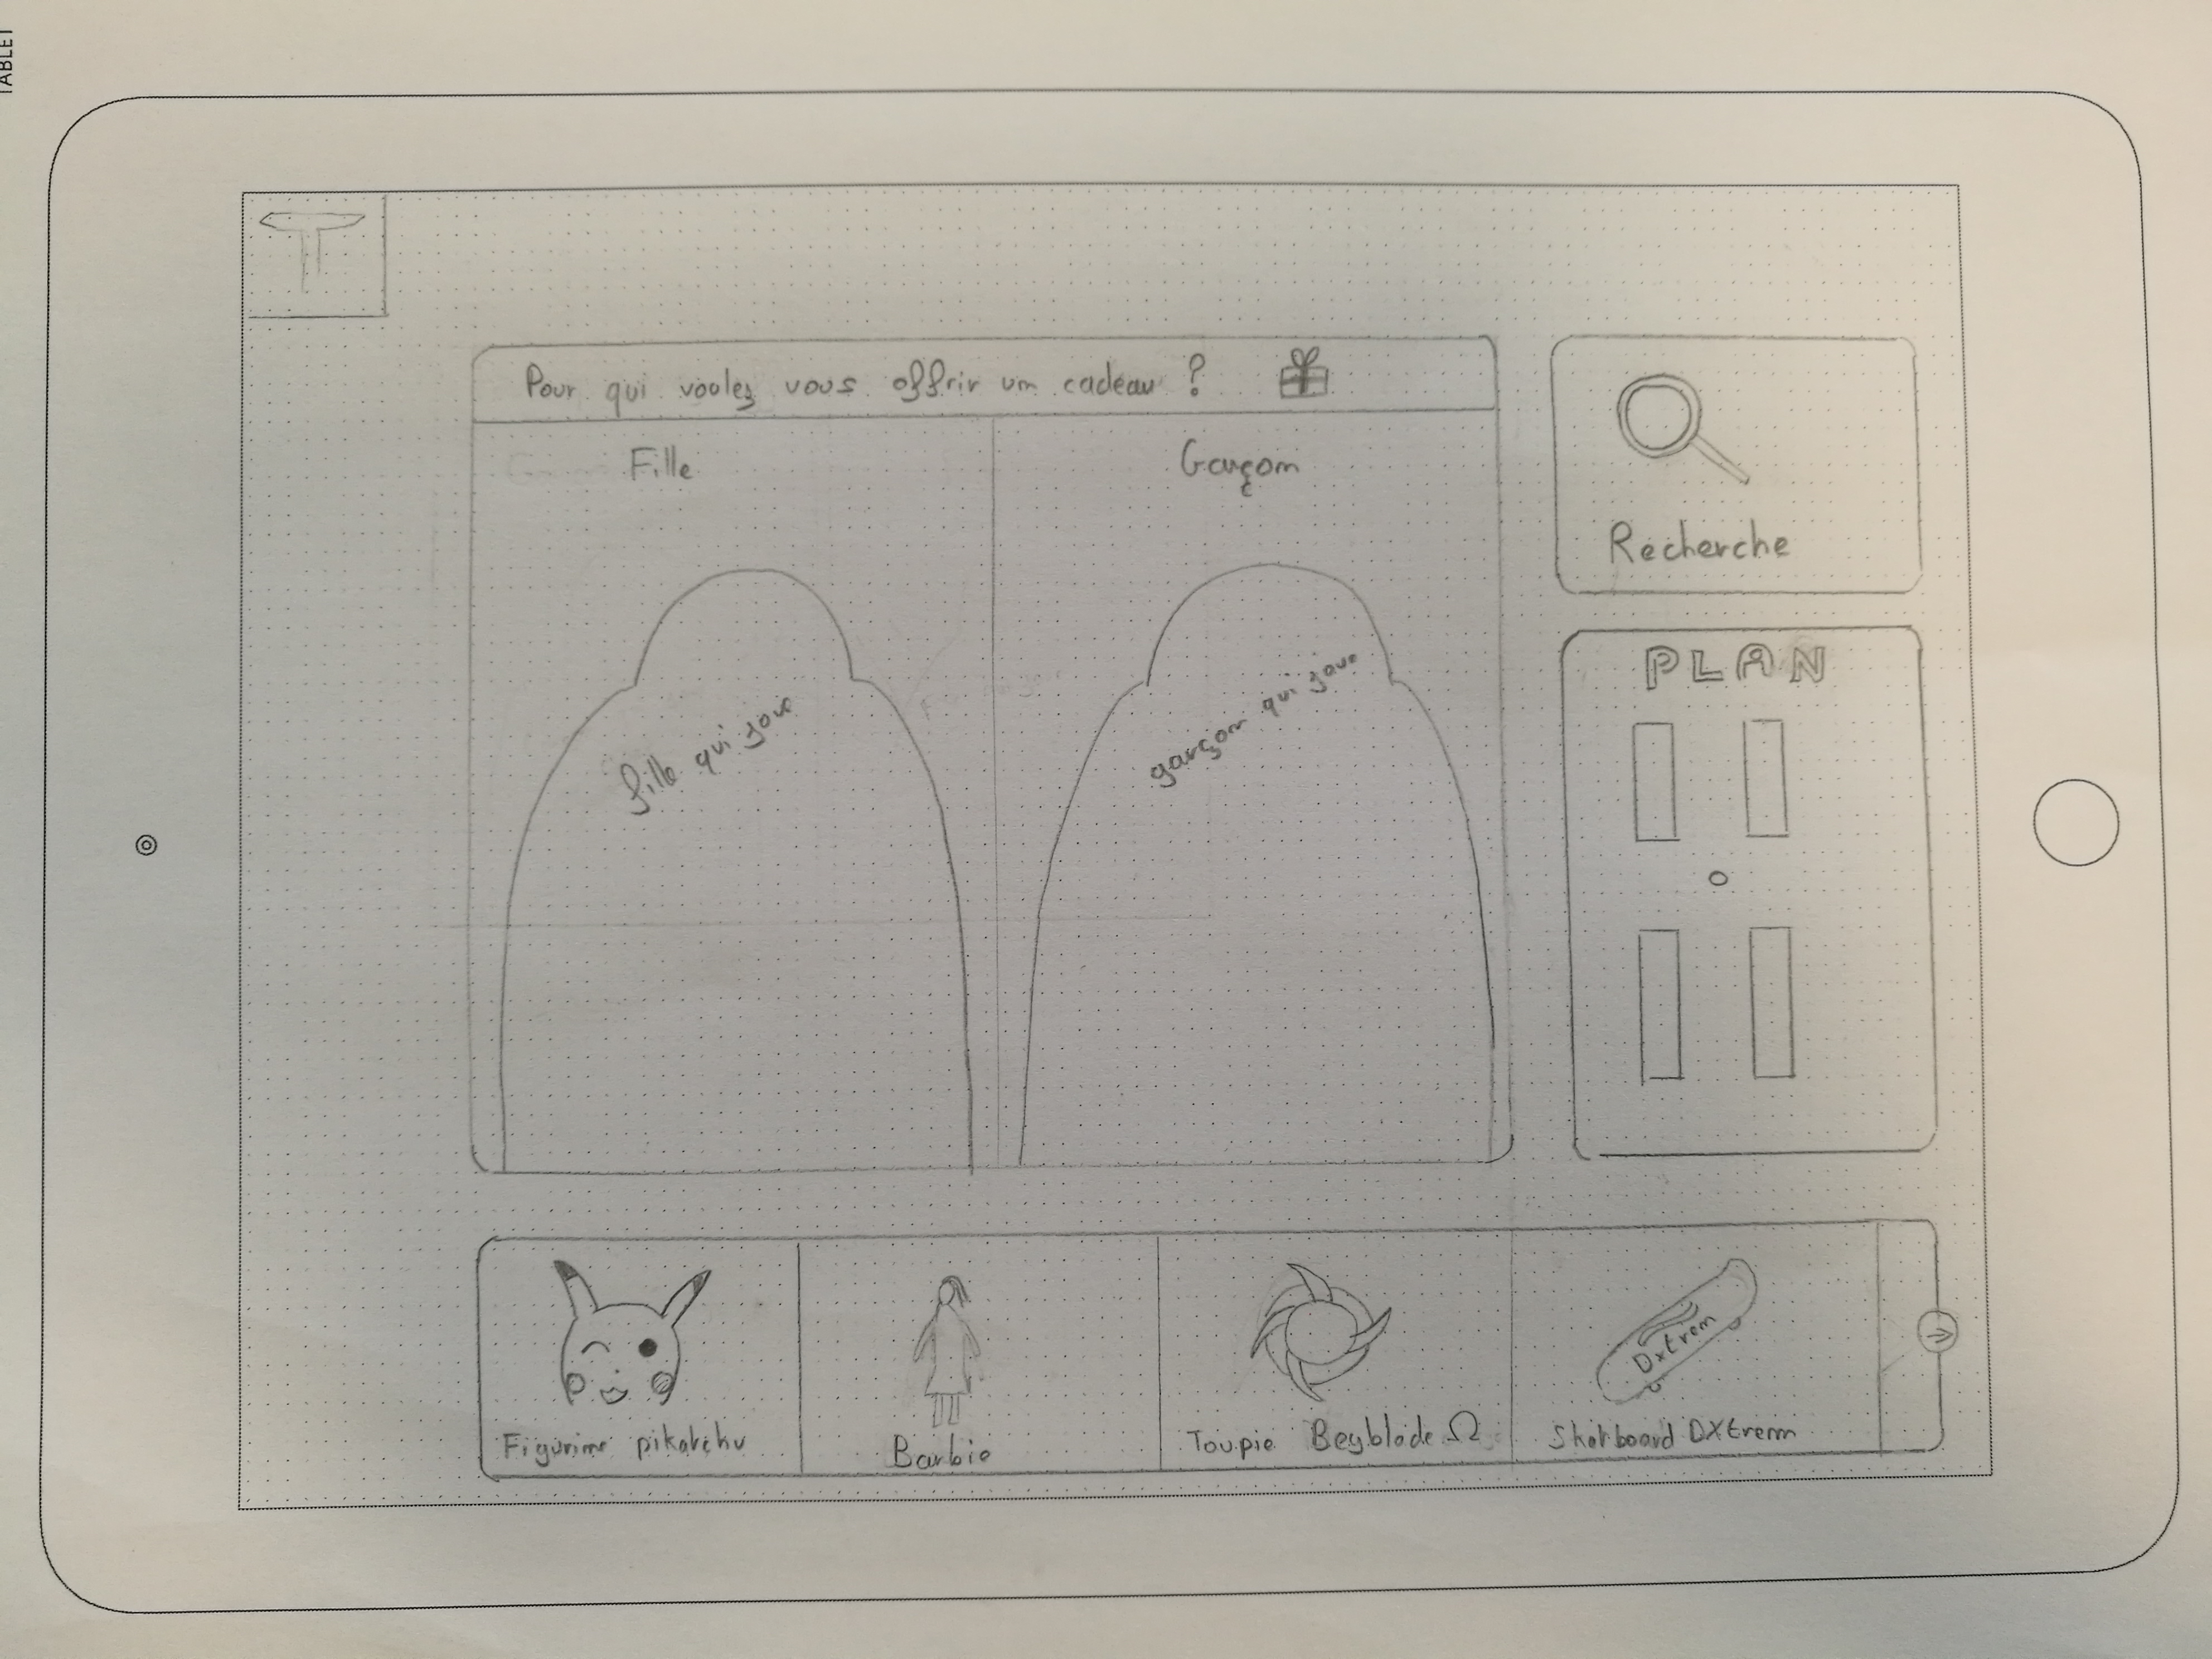 TABLET
T
Pour qui voulez vous offrir un cadeau ?
Fille
Garçon
fille qui joue
garçon qui joue
Recherche
PLAN
Dxtrem
Figurine pikatchu
Barbie
Toupie Beyblade Ω
Skatboard DXtrem